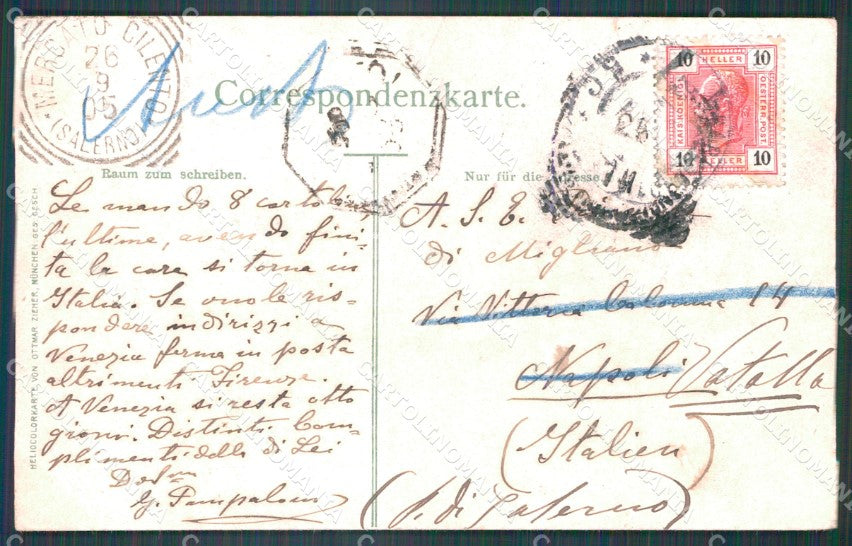 MERCATO CILENTO
26
9
05
(SALERNO)
Correspondenzkarte.
10 HELLER 10
KAIS. KÖN.
OESTERR. POST
10 HELLER 10
Raum zum schreiben.
Nur für die Adresse.
Le mando 8 cartol
l'ultime, avendo fini-
ta la cura si torna in
Italia. Se vuole ris-
pondere indirizzi a
Venezia ferma in posta
altrimenti Firenze.
A Venezia si resta otto
giorni. Distinti Com-
plimenti delli di Lei
G. Pampaloni
A. S. E.
di Migliano
Via Vittoria Colonna 14
Napoli Vatolla
(Italien)
(P. di Salerno)
HELIOCOLORKARTE VON OTTMAR ZIEHER, MÜNCHEN GES. GESCH.
CARTOLINOMANIA